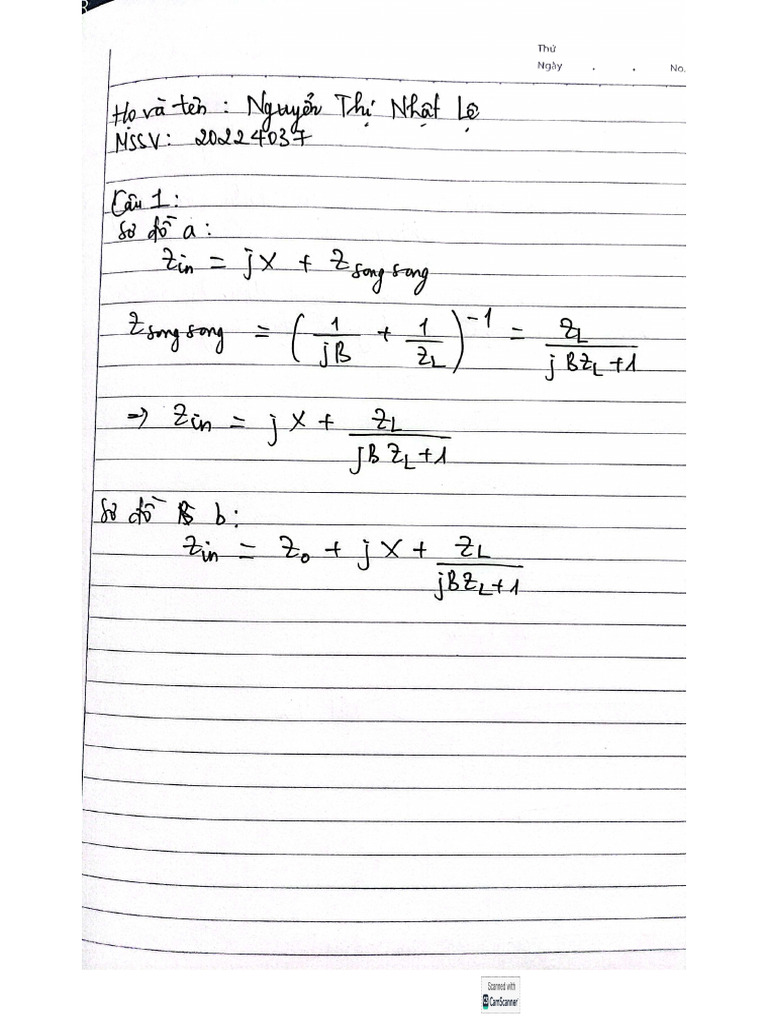 Thứ
Ngày . . No.
Họ và tên : Nguyễn Thị Nhật Lệ
MSSV: 20224037
Câu 1:
Sơ đồ a:
Zin = jX + Zsong song
Zsong song = (1/jB + 1/ZL)^-1 = ZL/(jBZL+1)
=> Zin = jX + ZL/(jBZL+1)
Sơ đồ b:
Zin = Z0 + jX + ZL/(jBZL+1)
Scanned with
CS CamScanner